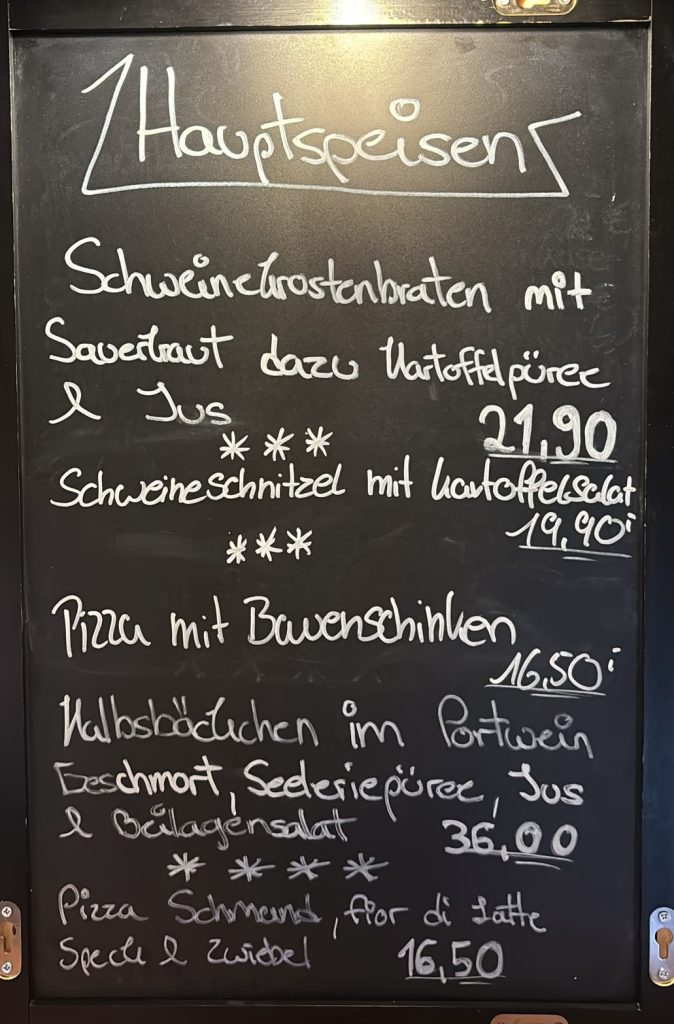 Hauptspeisen
Schweinekrostenbraten mit
Sauerkraut dazu Kartoffelpüree
& Jus
*** 21,90
Schweineschnitzel mit Kartoffelsalat
19,90
***
Pizza mit Bauernschinken
16,50
Kalbsbäckchen im Portwein
Geschmort, Seleriepüree, Jus
& Beilagensalat 36,00
****
Pizza Schmand, fior di Latte
Speck & Zwiebel 16,50